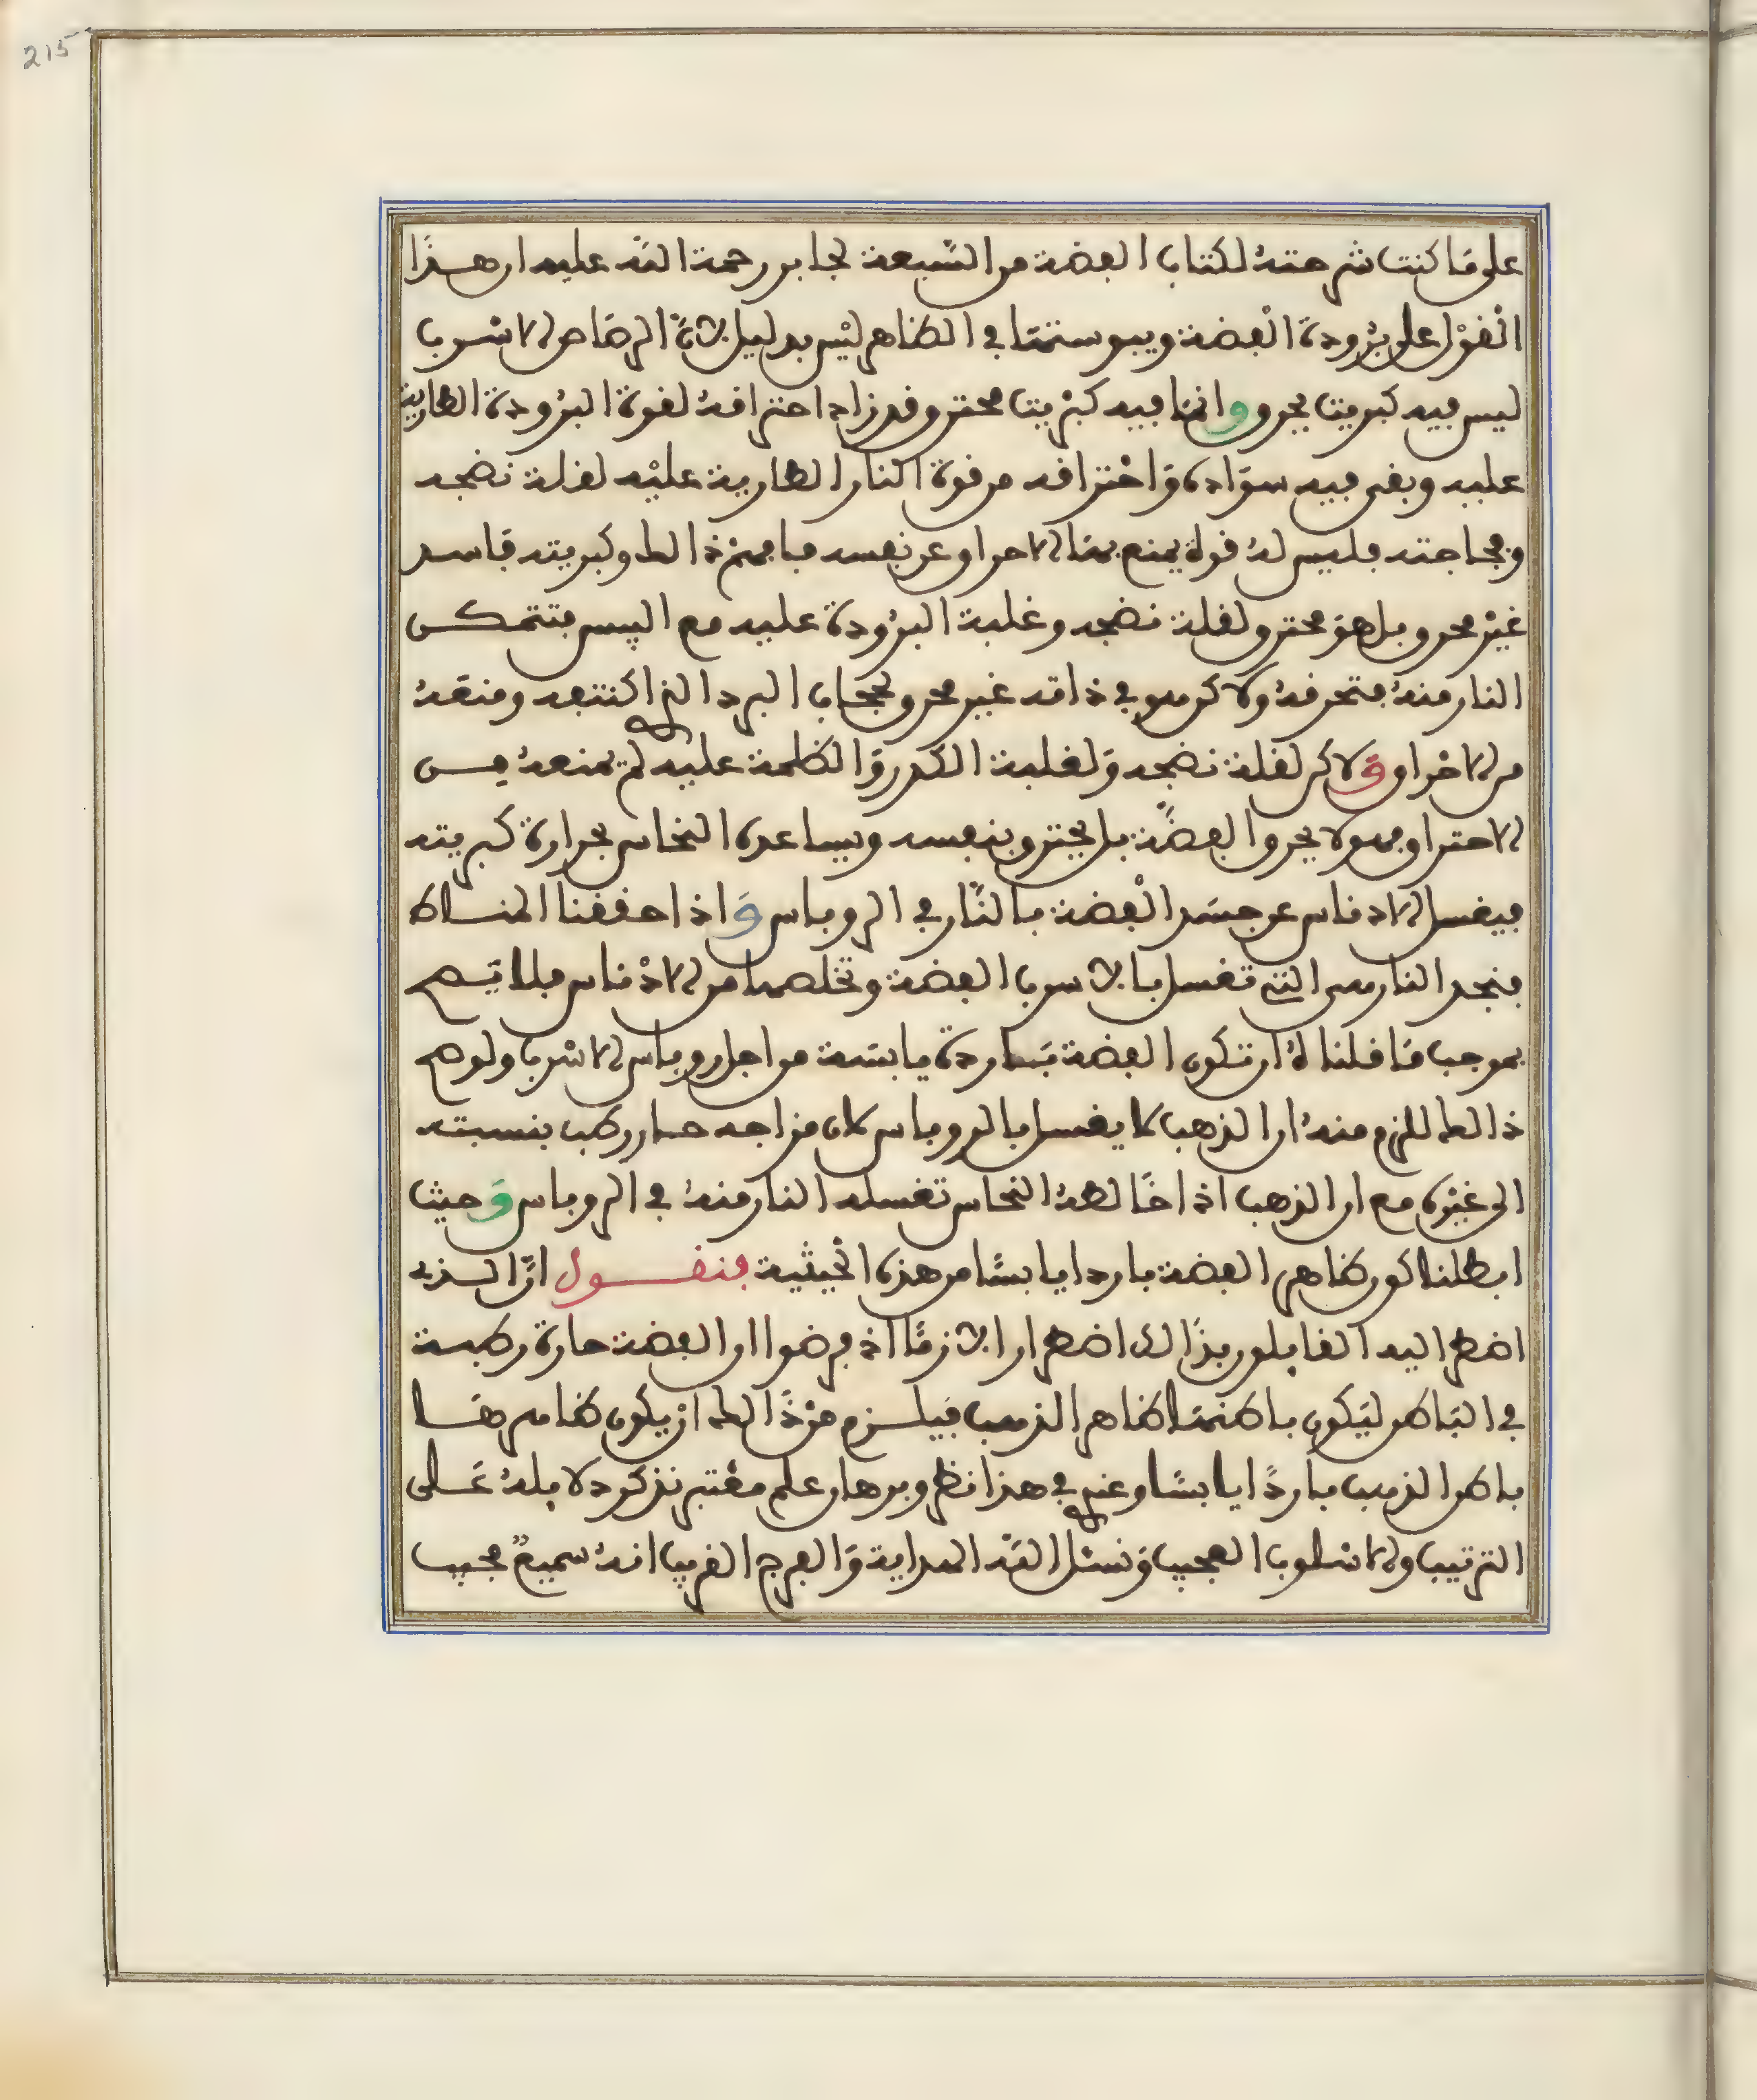 215
على ما كنت شرحته لكتاب الفضة من السبعة لجابر رحمة الله عليه ان هذا
القول على برودة الفضة ويبوستها في الظاهر ليس بدليل لان الرصاص الاسرب
ليس فيه كبريت يحرق وانما فيه كبريت محترق وقد زاد احتراقه لقوة البرودة الطارية
عليه وبقى فيه سواده واحتراقه من قوة النار الطارية عليه لقلة نضجه
وفجاجته فليس له قوة يمنع بها الاحراق عن نفسه فافهم ذالك وكبريته فاسد
غير محرق بل هو محترق لقلة نضجه وغلبة البرودة عليه مع اليبس فتتمكن
النار منه فتحرقه ولاكن هو في ذاته غير محرق لحجاب البرد الذي اكتنفه ومنعه
من الاحراق ولاكن لقلة نضجه ولغلبة الكدر والظلمة عليه لم يمنعه من
الاحتراق فهو لا يحرق الفضة بل يحترق بنفسه ويساعده النحاس بحرارة كبريته
فيغسل الادناس عن جسد الفضة بالنار في الروباس واذا حققنا المناط
فنجد النار هي التي تغسل بالاسرب الفضة وتخلصها من الادناس فلا يصح
بموجب ما قلناه ان تكون الفضة باردة يابسة من اجل روباس الاسرب ولو صح
ذالك للزم منه ان الذهب كا يغسل بالروباس كان مزاجه حار رطب بنسبته
الى غيره مع ان الذهب اذا خالطه النحاس تغسله النار منه في الروباس وحيث
ابطلنا كون ظاهر الفضة باردا يابسا من هذه الحيثية فنقول ان الذي
اضطر اليه القايلون بذالك اضطرارا لازما اذ فرضوا ان الفضة حارة رطبة
في الباطن ليكون باطنها ظاهر الذهب فيلزم من ذالك ان يكون ظاهرها
باطن الذهب باردا يابسا وعندي في هذا نظر وبرهان علم معتبر نذكر دلايله على
الترتيب والاسلوب العجيب ونسئل الله الهداية والفرج القريب انه سميع مجيب